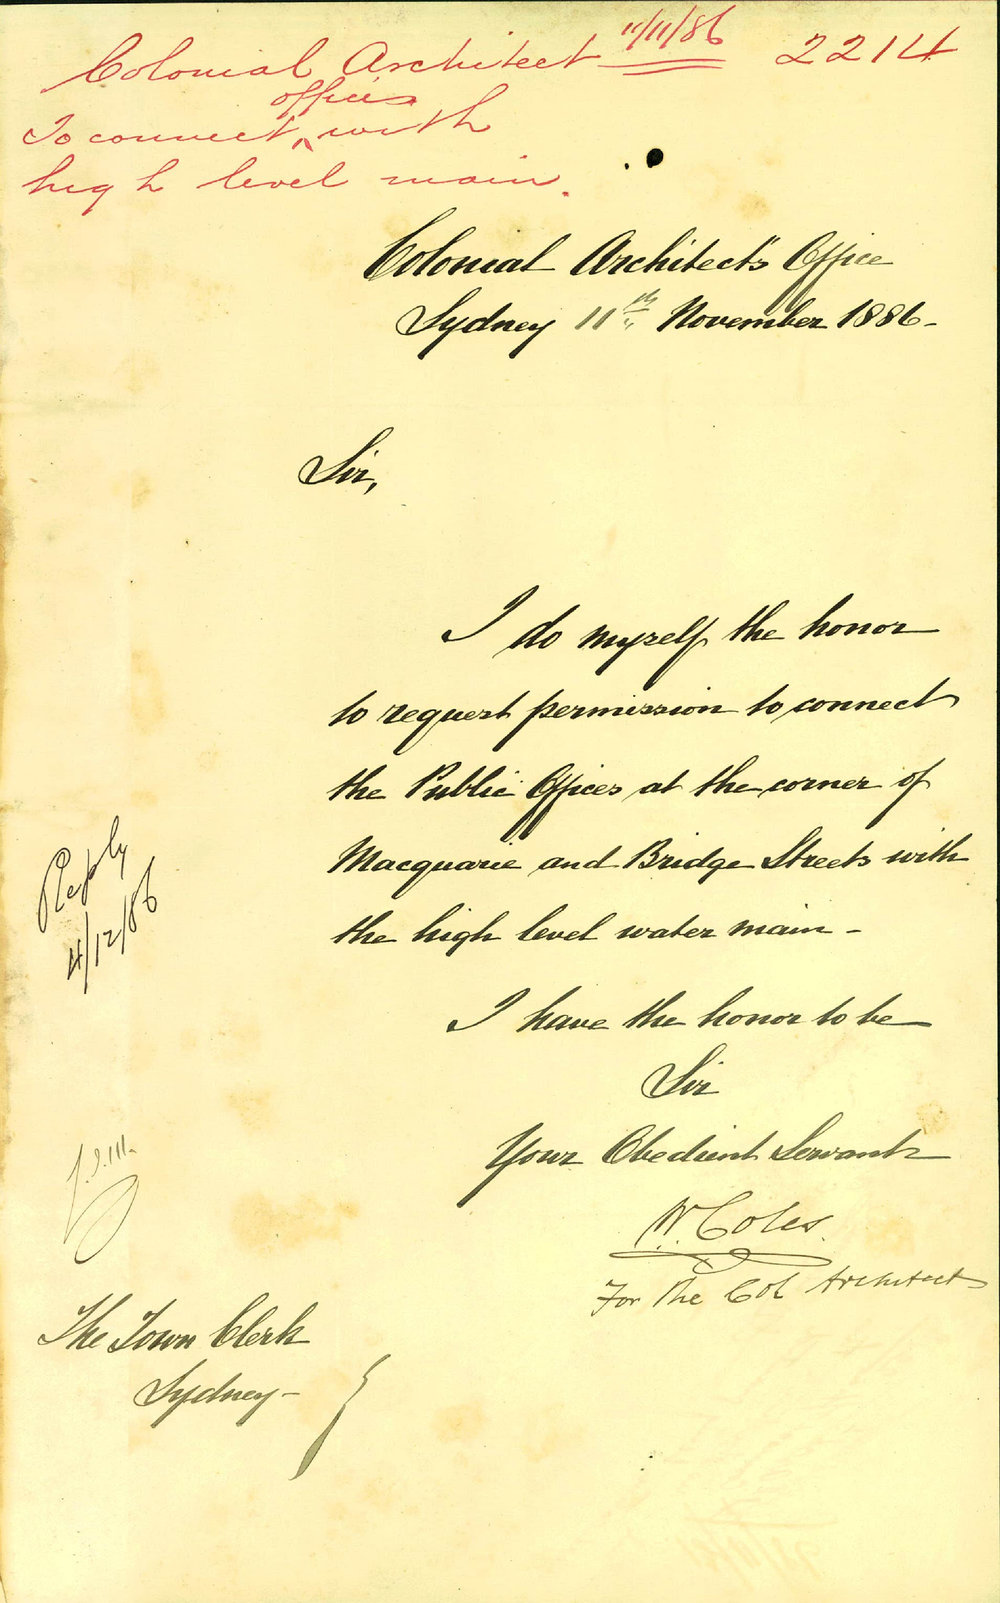 Colonial Architect 11/11/86 2214
offices
To connect ^ with
high level main.
Colonial Architect's Office
Sydney 11th November 1886-
Sir,
I do myself the honor
to request permission to connect
the Public Offices at the corner of
Macquarie and Bridge Streets with
the high level water main -
I have the honor to be
Sir
Your Obedient Servant
W. Coles.
For the Col Architect
Reply
4/12/86
The Town Clerk
Sydney-